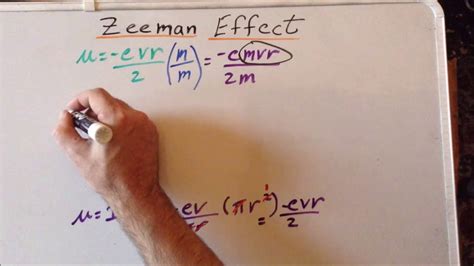 Zeeman Effect
μ = -evr/2 (m/m) = -emvr/2m
μ = -ev (πr²) -evr/2